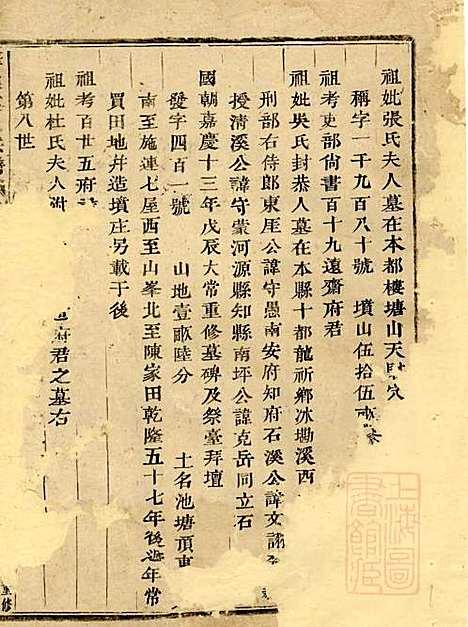 祖妣張氏夫人墓在本都樓塘山天
穴
稱字一千九百八十號　墳山伍拾伍畝
祖考吏部尙書百十九遠齋府君
祖妣吳氏封恭人墓在本縣十都龍祈鄉冰壑溪西
刑部右侍郎東厓公諱守愚南安府知府石溪公諱文
授清溪公諱守蒙河源縣知縣南坪公諱克岳同立石
國朝嘉慶十三年戊辰大常重修墓碑及祭臺拜壇
發字四百一號　山地壹畝陸分　土名池塘頂東
南至施連七屋西至山峯北至陳家田乾隆五十七年後遞年常
買田地并造墳庄另載于後
祖考百廿五府
祖妣杜氏夫人
府君之墓右
第八世
重修
上海圖書館藏